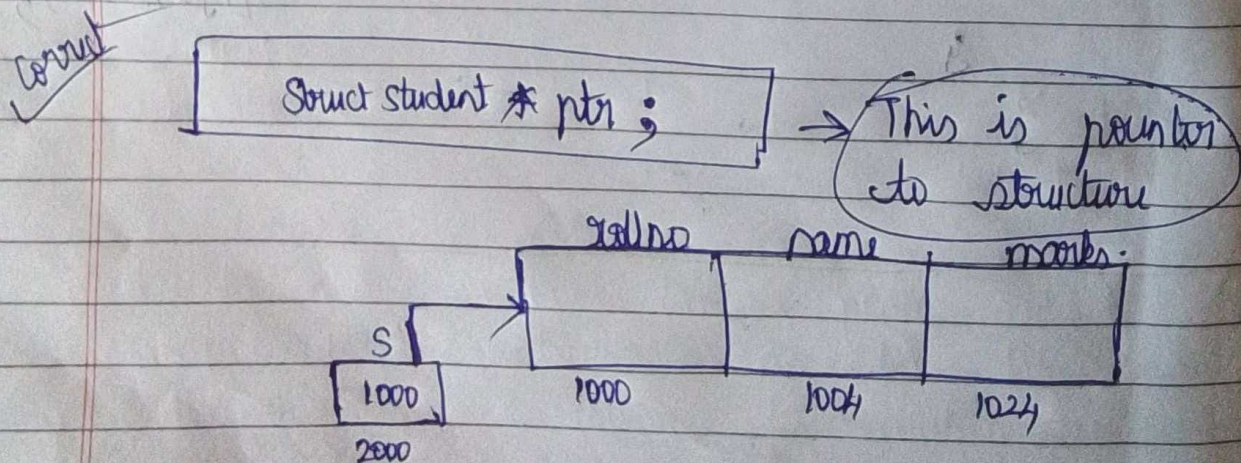 Correct
Struct student * ptr ;
→ This is pointor
to structure
rollno name marks.
S
1000 1000 1004 1024
2000